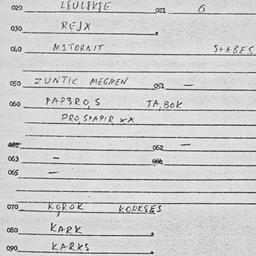 020 021 6
030 REJX
040 MITORNIT STABES
050 ZUNTIK MEGMEN 051 —
060 PAP3RO,S TA,BOK
PRO,SPAPIR XX
061 062 —
063 —
065 —
070 KOROK KORKSES
080 KARK
090 KARKS